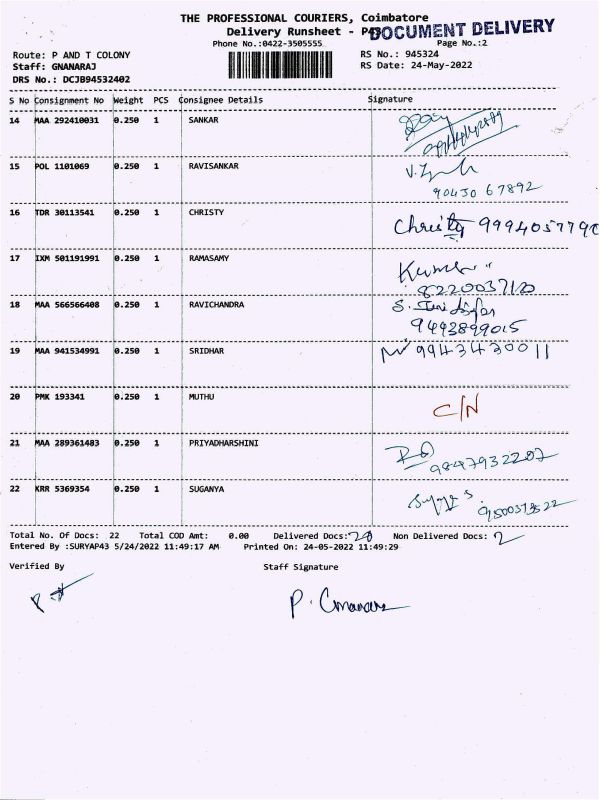 THE PROFESSIONAL COURIERS, Coimbatore
Delivery Runsheet - P43
DOCUMENT DELIVERY
Phone No.:0422-3505555
Page No.:2
Route: P AND T COLONY
RS No.: 945324
Staff: GNANARAJ
RS Date: 24-May-2022
DRS No.: DCJB94532402
S No Consignment No Weight PCS Consignee Details Signature
14 MAA 292410031 0.250 1 SANKAR
15 POL 1101069 0.250 1 RAVISANKAR
90430 67892
16 TDR 30113541 0.250 1 CHRISTY Christy 9994057790
17 IXM 501191991 0.250 1 RAMASAMY
8220037120
18 MAA 566566408 0.250 1 RAVICHANDRA
9443899015
19 MAA 941534991 0.250 1 SRIDHAR 9943420011
20 PMK 193341 0.250 1 MUTHU C/N
21 MAA 289361483 0.250 1 PRIYADHARSHINI
9847932207
22 KRR 5369354 0.250 1 SUGANYA
Total No. Of Docs: 22 Total COD Amt: 0.00 Delivered Docs: 20 Non Delivered Docs: 2
Entered By :SURYAP43 5/24/2022 11:49:17 AM Printed On: 24-05-2022 11:49:29
Verified By Staff Signature